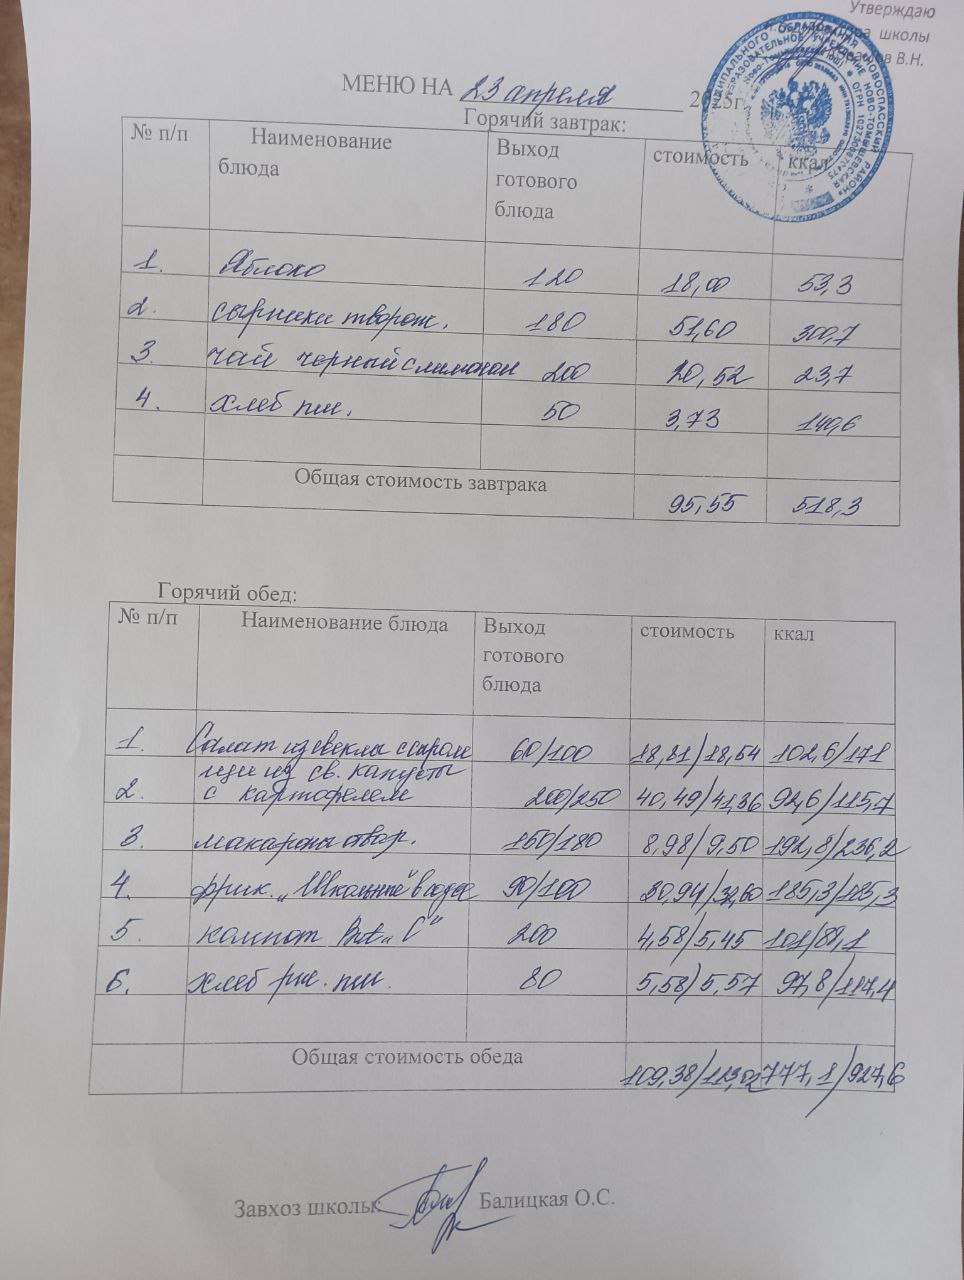 Утверждаю
школы
В.Н.
МЕНЮ НА 23 апреля 2025г.
Горячий завтрак:
№ п/п Наименование блюда Выход готового блюда стоимость ккал
1. Яблоко 120 18,00 53,3
2. сырники творож. 180 51,60 300,7
3. чай черный с лимоном 200 20,52 23,7
4. хлеб пш. 50 3,73 140,6
Общая стоимость завтрака 95,55 518,3
Горячий обед:
№ п/п Наименование блюда Выход готового блюда стоимость ккал
1. Салат из свеклы с сыром 60/100 18,81/18,54 102,6/171
щи из св. капусты
2. с картофелем 200/250 40,49/41,36 92,6/115,7
3. макароны отвар. 150/180 8,98/9,50 192,8/236,2
4. фрик. „Школьные" в соусе 90/100 30,94/32,60 185,3/185,3
5. компот Вит „С" 200 4,58/5,45 101/84,1
6. хлеб рж. пш. 80 5,58/5,57 97,8/117,4
Общая стоимость обеда 109,38/113,02 777,1/927,6
Завхоз школы: Балицкая О.С.